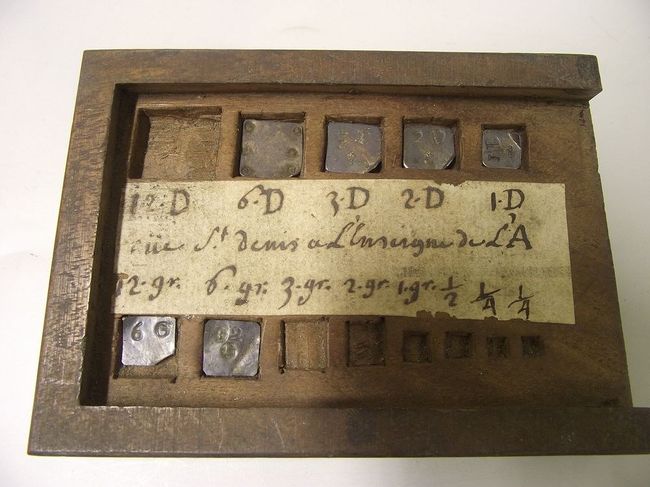 12·D 6·D 3·D 2·D 1·D
rüe S.t denis a L'Enseigne de L'A
12·gr. 6·gr. 3·gr. 2·gr. 1·gr. 1/2 1/4 1/4
6 6